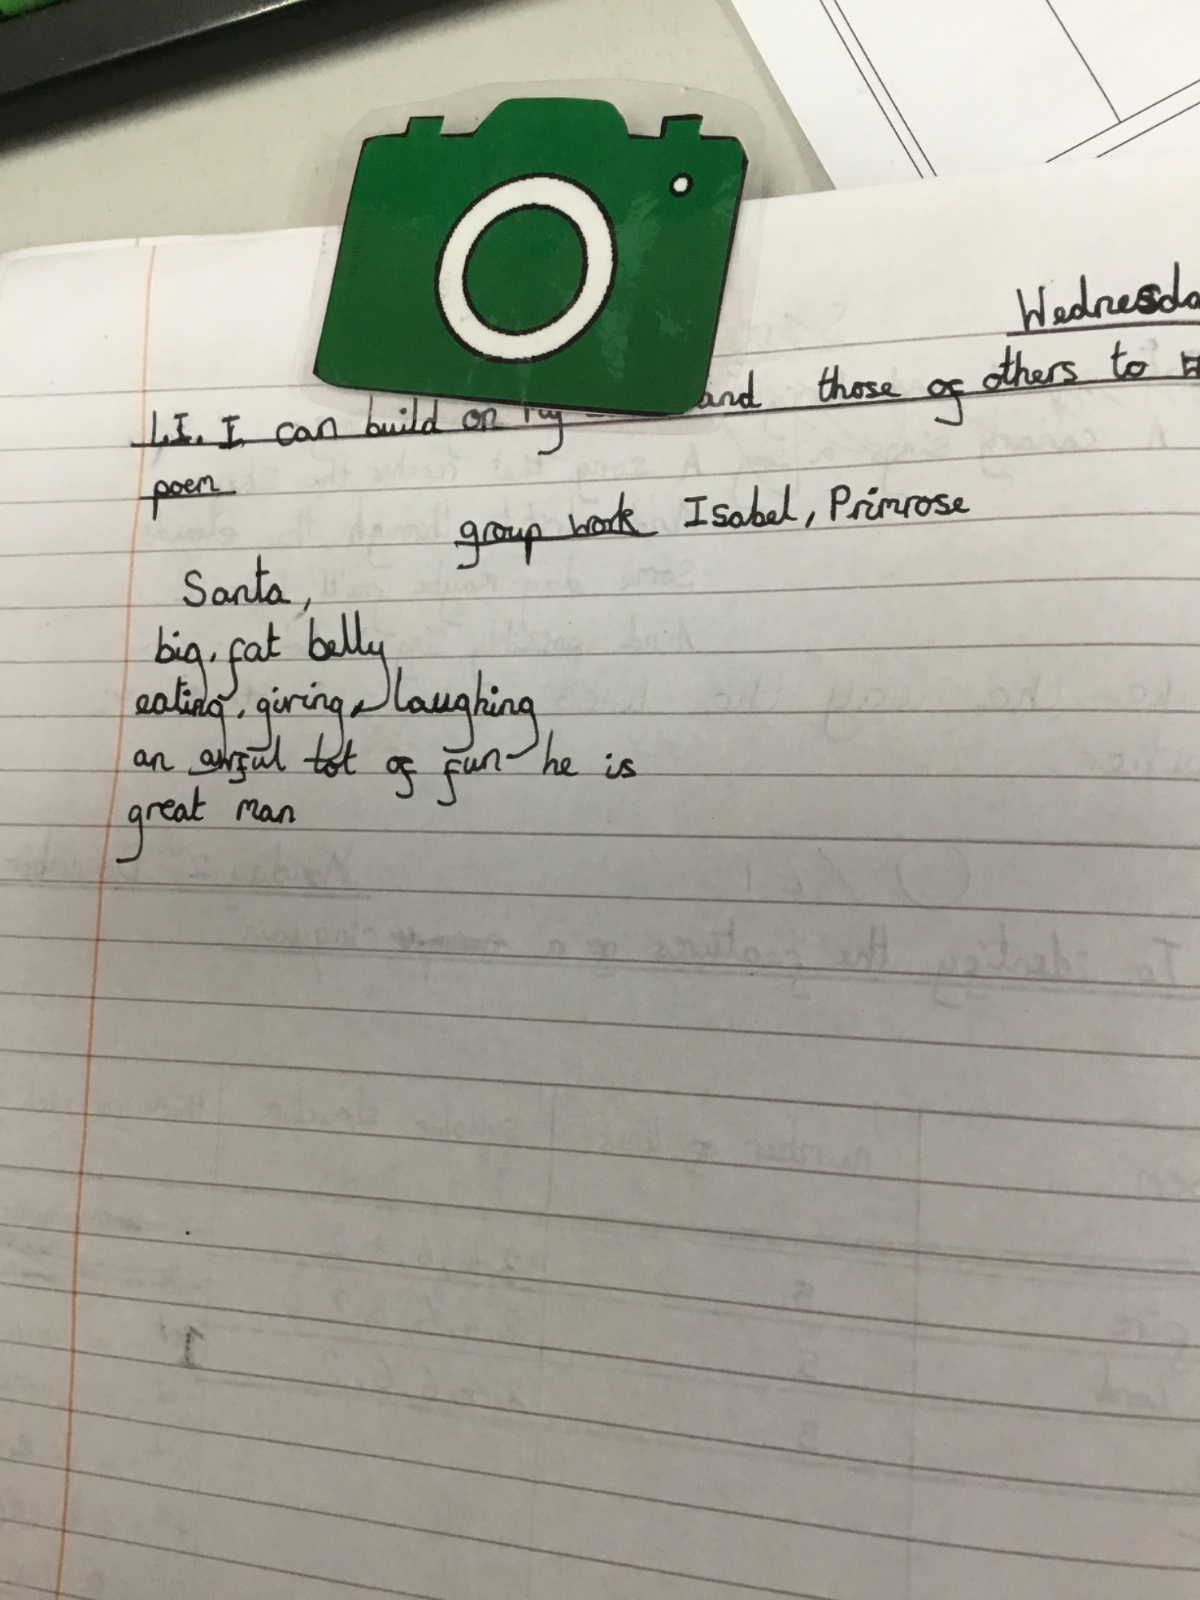 Wednesda
L.I. I can build on my and those of others to
poem
group work Isabel, Primrose
Santa,
big, fat belly
eating, giving, laughing
an awful tot of fun- he is
great man